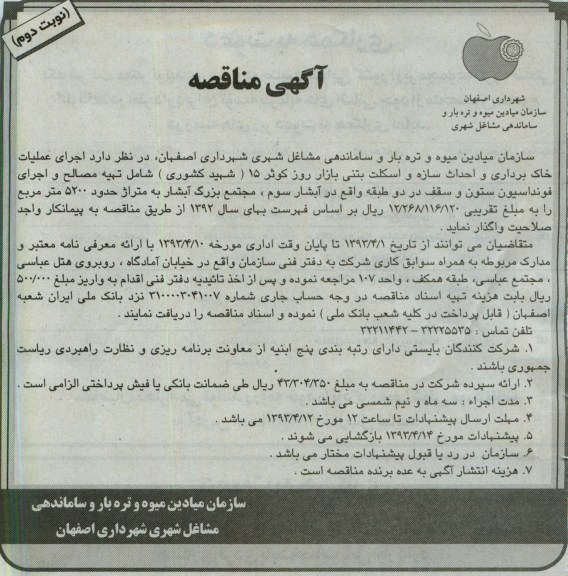 (نوبت دوم)
شهرداری اصفهان
سازمان میادین میوه و تره بار و
ساماندهی مشاغل شهری
آگهی مناقصه
سازمان میادین میوه و تره بار و ساماندهی مشاغل شهری شهرداری اصفهان، در نظر دارد اجرای عملیات
خاک برداری و احداث سازه و اسکلت بتنی بازار روز کوثر ۱۵ ( شهید کشوری ) شامل تهیه مصالح و اجرای
فونداسیون ستون و سقف در دو طبقه واقع در آبشار سوم ، مجتمع بزرگ آبشار به متراژ حدود ۵۲۰۰ متر مربع
را به مبلغ تقریبی ۱۲/۲۶۸/۱۱۶/۱۲۰ ریال بر اساس فهرست بهای سال ۱۳۹۲ از طریق مناقصه به پیمانکار واجد
صلاحیت واگذار نماید .
متقاضیان می توانند از تاریخ ۱۳۹۳/۴/۱ تا پایان وقت اداری مورخه ۱۳۹۳/۴/۱۰ با ارائه معرفی نامه معتبر و
مدارک مربوطه به همراه سوابق کاری شرکت به دفتر فنی سازمان واقع در خیابان آمادگاه ، روبروی هتل عباسی
، مجتمع عباسی، طبقه همکف ، واحد ۱۰۷ مراجعه نموده و پس از اخذ تائیدیه دفتر فنی اقدام به واریز مبلغ ۵۰۰/۰۰۰
ریال بابت هزینه تهیه اسناد مناقصه در وجه حساب جاری شماره ۳۱۰۰۰۰۳۰۴۱۰۰۷ نزد بانک ملی ایران شعبه
اصفهان ( قابل پرداخت در کلیه شعب بانک ملی ) نموده و اسناد مناقصه را دریافت نمایند .
تلفن تماس : ۳۲۲۲۵۵۳۵ – ۳۲۲۱۱۴۴۲
۱. شرکت کنندگان بایستی دارای رتبه بندی پنج ابنیه از معاونت برنامه ریزی و نظارت راهبردی ریاست
جمهوری باشند .
۲. ارائه سپرده شرکت در مناقصه به مبلغ ۴۳/۳۰۴/۳۵۰ ریال طی ضمانت بانکی یا فیش پرداختی الزامی است .
۳. مدت اجراء : سه ماه و نیم شمسی می باشد .
۴. مهلت ارسال پیشنهادات تا ساعت ۱۲ مورخ ۱۳۹۳/۴/۱۲ می باشد .
۵. پیشنهادات مورخ ۱۳۹۳/۴/۱۴ بازگشایی می شوند .
۶. سازمان در رد یا قبول پیشنهادات مختار می باشد .
۷. هزینه انتشار آگهی به عده برنده مناقصه است .
سازمان میادین میوه و تره بار و ساماندهی
مشاغل شهری شهرداری اصفهان